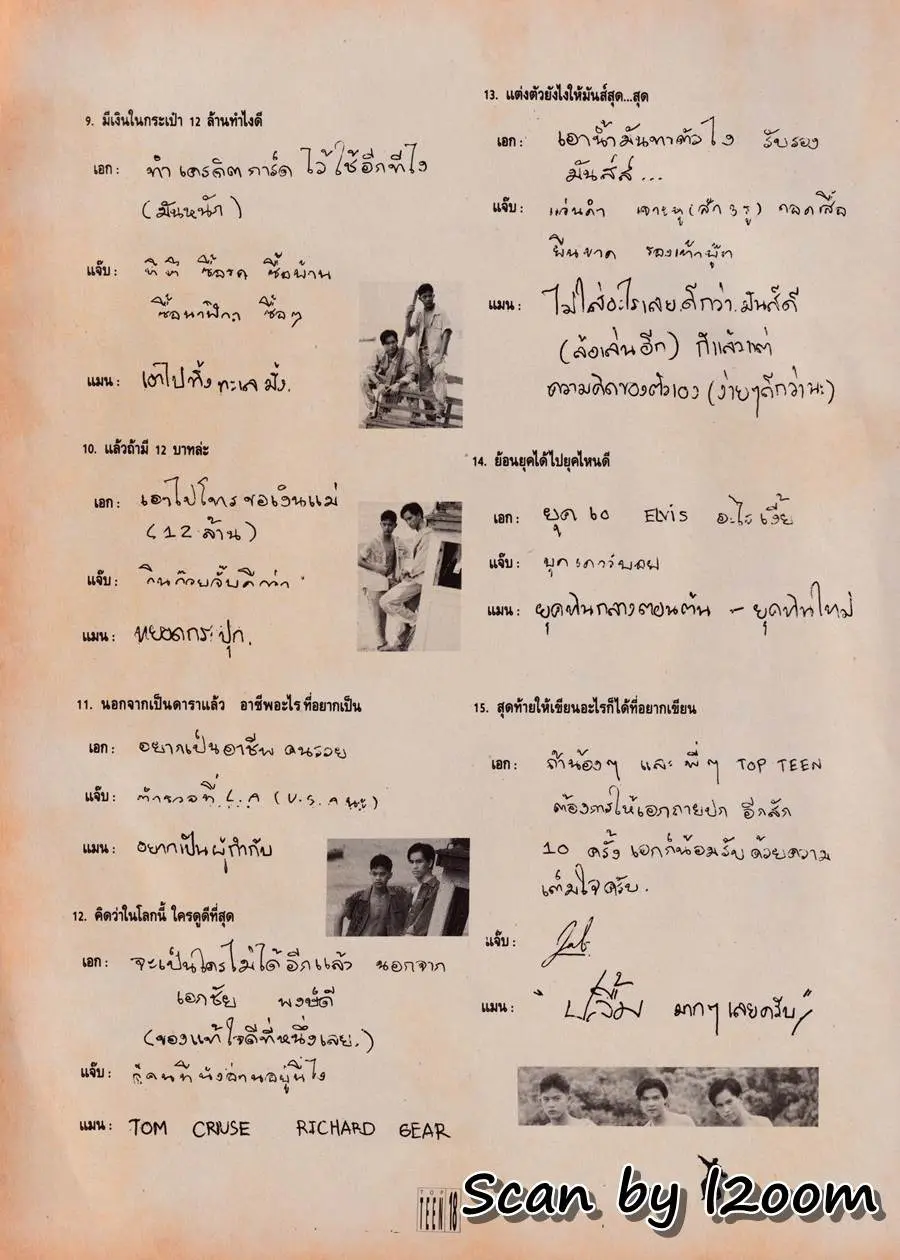 9. มีเงินในกระเป๋า 12 ล้านทำไงดี
เอก : ทำเครดิตการ์ด ไว้ใช้อีกทีไง
(มันหนัก)
แจ๊บ : ซื้อรถ ซื้อบ้าน
ซื้อนาฬิกา ซื้อๆ
แมน : เอาไปทิ้งทะเลมั้ง.
10. แล้วถ้ามี 12 บาทล่ะ
เอก : เอาไปโทรขอเงินแม่
(12 ล้าน)
แจ๊บ : กินก๋วยจั๊บดีกว่า
แมน : หยอดกระปุก.
11. นอกจากเป็นดาราแล้ว อาชีพอะไรที่อยากเป็น
เอก : อยากเป็นอาชีพ คนรวย
แจ๊บ : ตำรวจที่ L.A (U.S.A นะ)
แมน : อยากเป็นผู้กำกับ
12. คิดว่าในโลกนี้ ใครดูดีที่สุด
เอก : จะเป็นใครไม่ได้อีกแล้ว นอกจาก
เอกชัย พงษ์ดี
(ของแท้ใจดีที่หนึ่งเลย.)
แจ๊บ : ก็คนที่นั่งอ่านอยู่นี่ไง
แมน : TOM CRIUSE RICHARD GEAR
13. แต่งตัวยังไงให้มันส์สุด...สุด
เอก : เอาน้ำมันทาตัวไง รับรอง
มันส์ส์...
แจ๊บ : แว่นดำ เจาะหู (สัก 3 รู) ถอดเสื้อ
ยีนขาด รองเท้าบู๊ท
แมน : ไม่ใส่อะไรเลยดีกว่า.มันส์ดี
(ล้อเล่นอีก) ก็แล้วแต่
ความคิดของตัวเอง (ง่ายๆดีกว่านะ)
14. ย้อนยุคได้ไปยุคไหนดี
เอก : ยุค 60 ELVIS อะไรเงี้ย
แจ๊บ : ยุคคาวบอย
แมน : ยุคหินกลางตอนต้น - ยุคหินใหม่
15. สุดท้ายให้เขียนอะไรก็ได้ที่อยากเขียน
เอก : ถ้าน้องๆ และ พี่ๆ TOP TEEN
ต้องการให้เอกถ่ายปก อีกสัก
10 ครั้ง เอกก็น้อมรับด้วยความ
เต็มใจครับ.
แจ๊บ : Jab.
แมน : "ปลื้ม มากๆ เลยครับ"
TOP
TEEN 18
Scan by l2oom